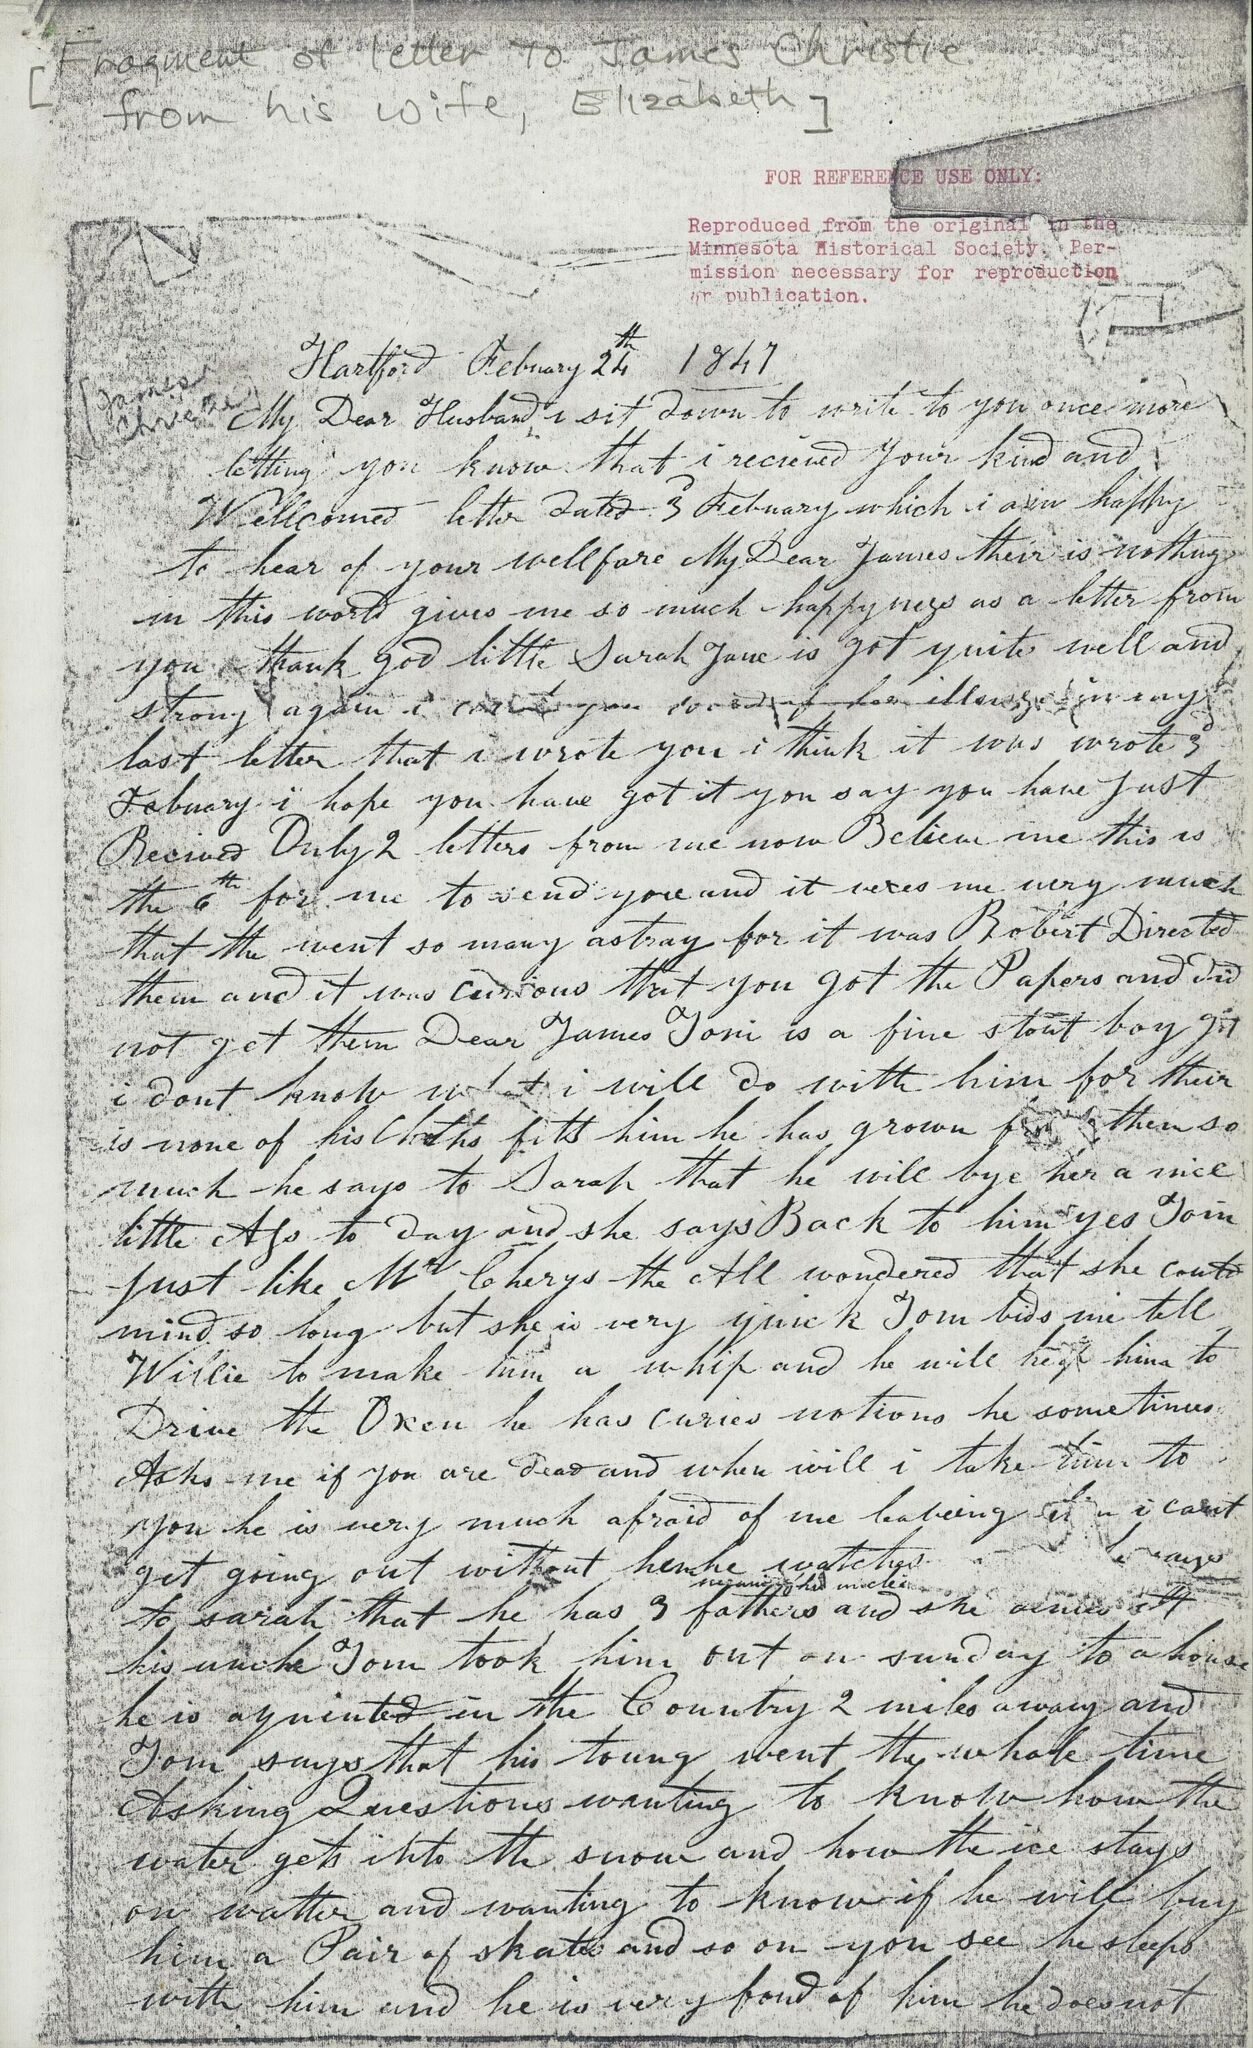 [Fragment of letter to James Christie
from his wife, Elizabeth]
FOR REFERENCE USE ONLY:
Reproduced from the original in the
Minnesota Historical Society. Per-
mission necessary for reproduction
or publication.
Hartford Febuary 24th 1847
[James
My Dear Husband i sit down to write to you once more
letting you know that i recieved Your kind and
Wellcomed letter dated 3d Febuary which i am happy
to hear of your wellfare My Dear James their is nothing
in this world gives me so much happyness as a letter from
you thank god little Sarah Jane is got quite well and
strong again i you of her illness in my
last letter that i wrote you i think it was wrote 3d
Febuary i hope you have got it you say you have Just
Recived Only 2 letters from me now Believe me this is
the 6th for me to send you and it vexes me very much
that the went so many astray for it was Robert Directed
them and it was curious that you got the Papers and did
not get them Dear James Tom is a fine stout boy
i dont know what i will do with him for their
is none of his Cloths fitts him he has grown them so
much he says to Sarah that he will bye her a nice
little to day and she says Back to him yes Tom
Just like Mr Cherys the All wondered that she could
mind so long but she is very quick Tom bids me tell
Willie to make him a whip and he will help him to
Drive the Oxen he has curies notions he sometimes
Asks me if you are dead and when will i take him to
you he is very much afraid of me leaveing him i cant
get going out without he watches he says
to sarah that he has 3 fathers meaning his uncles and she
his uncle Tom took him out on sunday to a house
he is aquinted in the Country 2 miles away and
Tom says that his toung went the whole time
Asking Questions wanting to know how the
water gets into the snow and how the ice stays
on watter and wanting to know if he will buy
him a Pair of skates and so on you see he sleeps
with him and he is very fond of him he does not